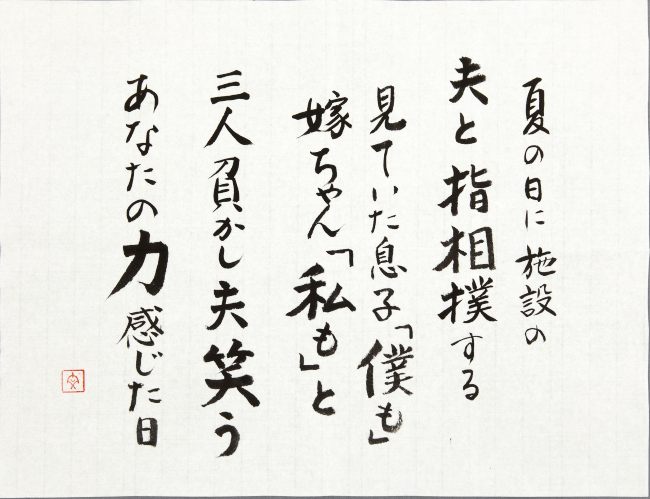 夏の日に施設の
夫と指相撲する
見ていた息子「僕も」
嫁ちゃん「私も」と
三人負かし夫笑う
あなたの力感じた日